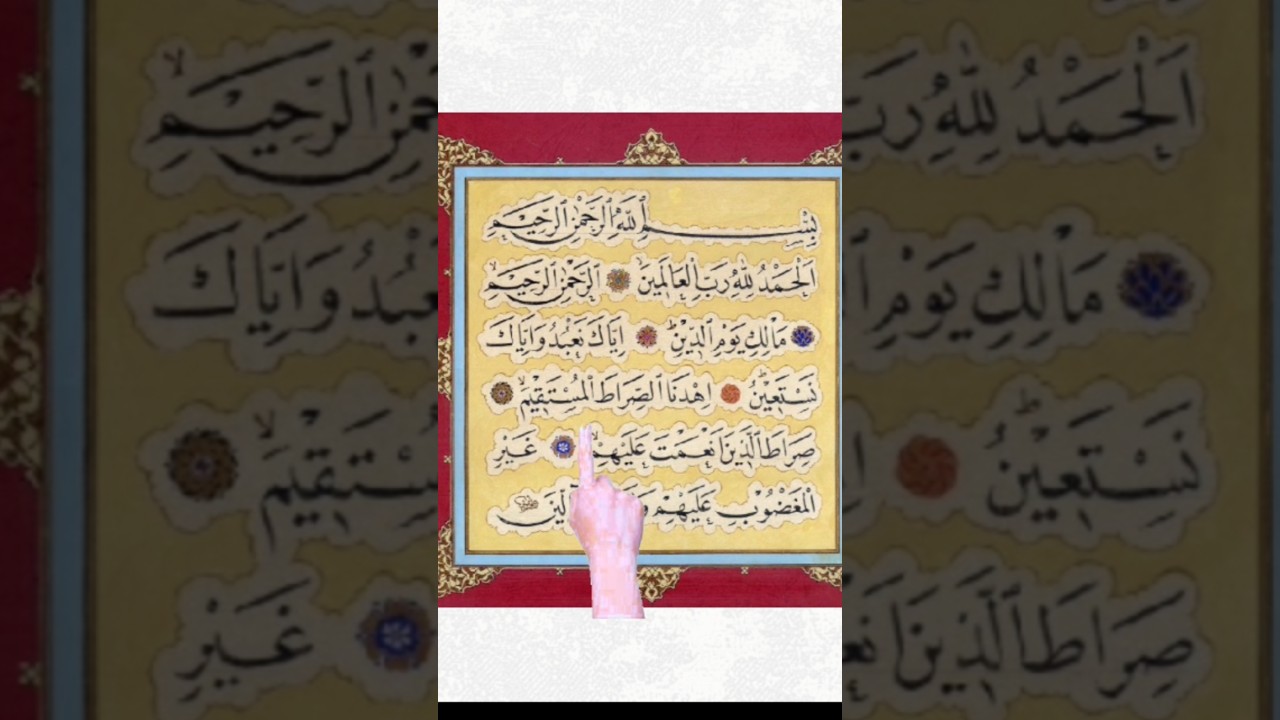 بِسْمِ ٱللّٰهِ ٱلرَّحْمٰنِ ٱلرَّحِيمِ
اَلْحَمْدُ لِلّٰهِ رَبِّ الْعَالَمِينَ اَلرَّحْمٰنِ ٱلرَّحِيمِ
مَالِكِ يَوْمِ ٱلدِّينِ اِيَّاكَ نَعْبُدُ وَاِيَّاكَ
نَسْتَعِينُ اِهْدِنَا ٱلصِّرَاطَ الْمُسْتَقِيمَ
صِرَاطَ ٱلَّذِينَ اَنْعَمْتَ عَلَيْهِمْ غَيْرِ
الْمَغْضُوبِ عَلَيْهِمْ